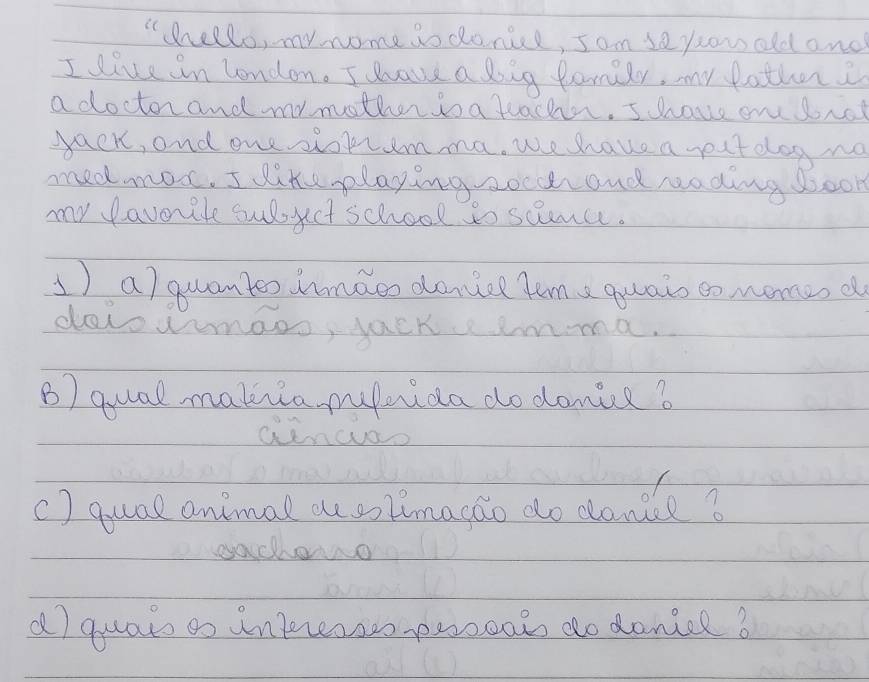 "hello, my name is daniel, I am 12 years old and
I live in london. I have a big family. my father is
a doctor and my mother is a teacher. I have one brot
jack, and one sister emma. we have a pet dog na
med max. I like playing soccer and reading book
my favorite subject school is science.
1) a) quantos irmãos daniel tem e quais os nomes de
dois irmãos, jack e emma.
B) qual matéria preferida do daniel?
ciências
c) qual animal de estimação do daniel?
cachorro
d) quais os interesses pessoais do daniel?